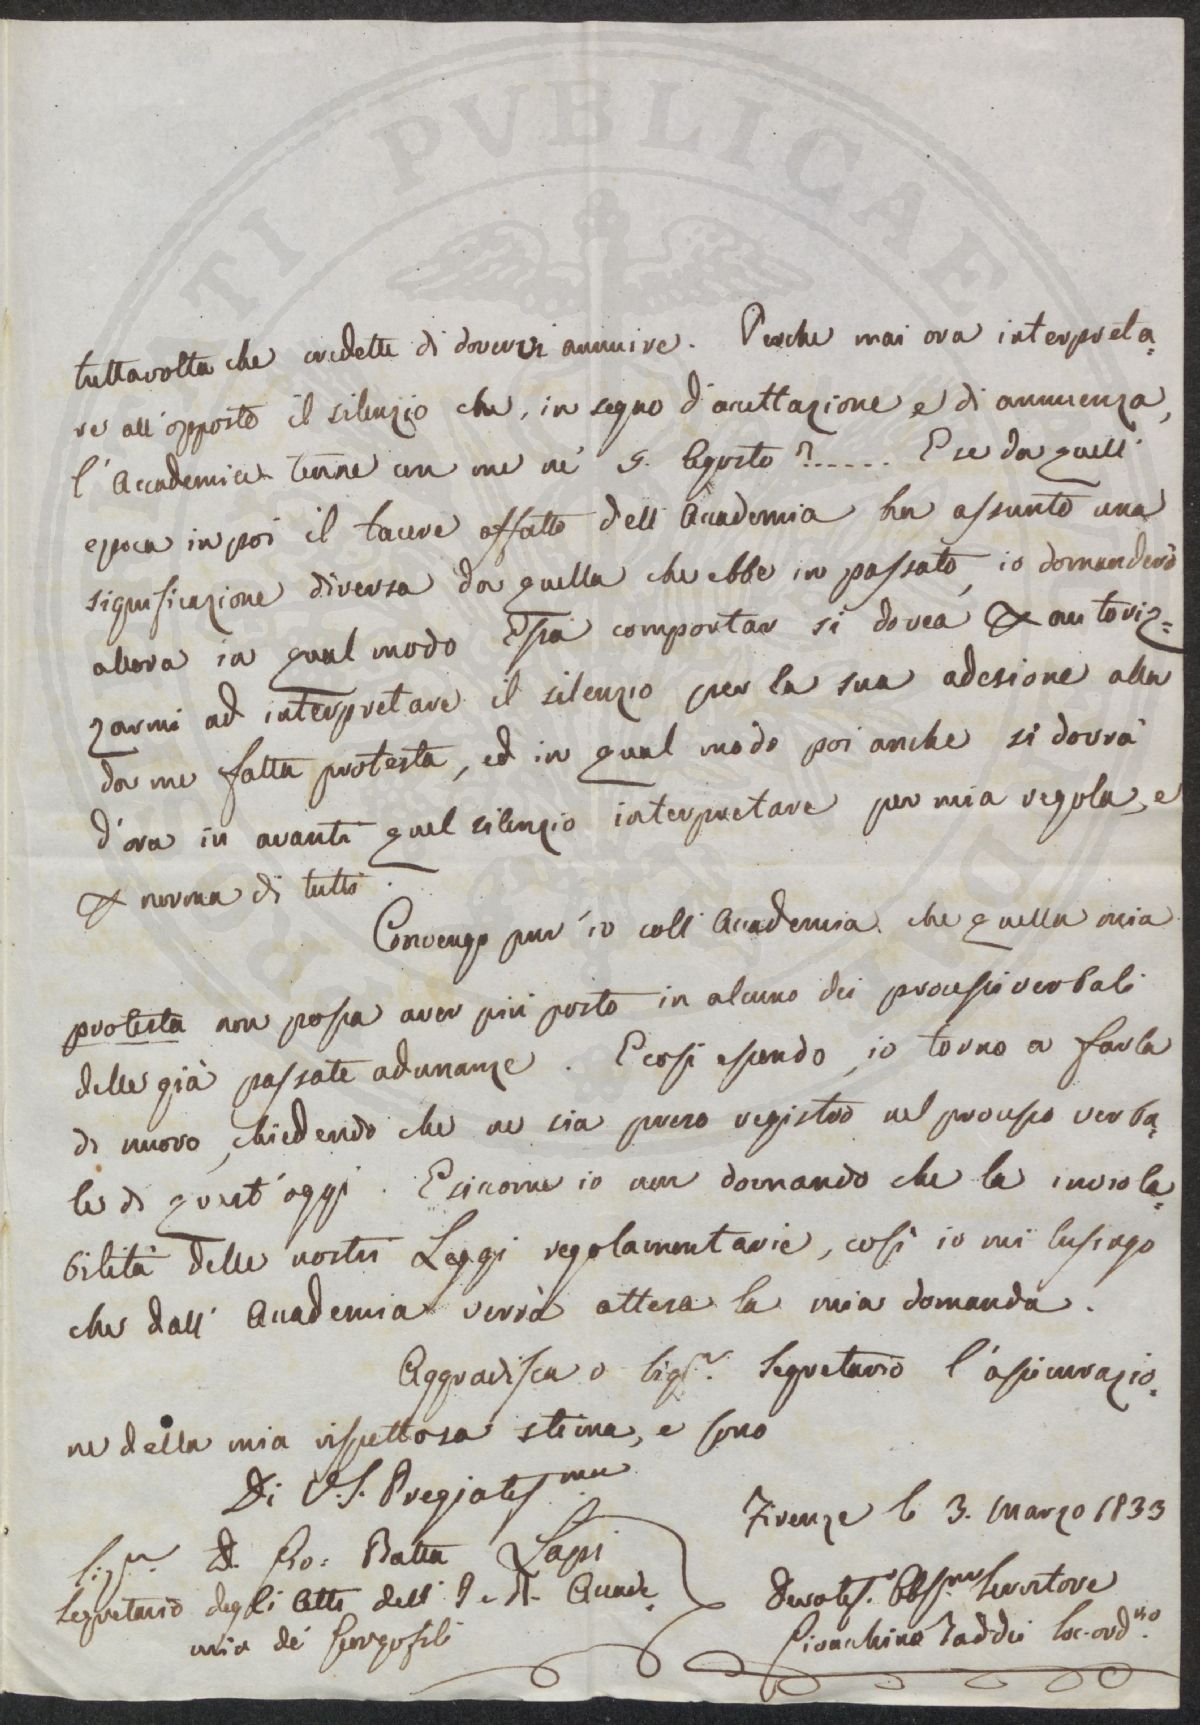 PVBLICAE
tuttavolta che credette di dovervi annuire. Perche mai ora interpreta=
re all'opposto il silenzio che, in segno d'accettazione e di annuenza,
l'Accademia tenne con me ne' 5. Agosto?...... E se da quell'
epoca in poi il tacere affatto dell'Accademia ha assunto una
significazione diversa da quella che ebbe in passato, io domanderò
allora in qual modo Essa comportar si dovea per autoriz=
zarmi ad interpretare il silenzio per la sua adesione alla
da me fatta protesta, ed in qual modo poi anche si dovrà
d'ora in avanti quel silenzio interpretare per mia regola, e
per norma di tutti.
Convengo pur'io coll'Accademia che quella mia
protesta non possa aver più posto in alcuno dei processi verbali
delle già passate adunanze. E così essendo, io torno a farla
di nuovo, chiedendo che ne sia preso registro nel processo verba=
le di quest'oggi. E siccome io non domando che la inviola=
bilità delle nostre Leggi regolamentarie, così io mi lusingo
che dall'Accademia verrà attesa la mia domanda.
Aggradisca o Sigr. Segretario l'assicurazio=
ne della mia rispettosa stima, e sono
Di V.S. Pregiatissma
Firenze li 3. Marzo 1833
Sigr. D. Gio: Batta Lapi
Segretario degli Atti dell'I. e R. Accade=
mia de' Georgofili
Devotis. Obbmo Servitore
Gioacchino Taddei Soc. ordrio